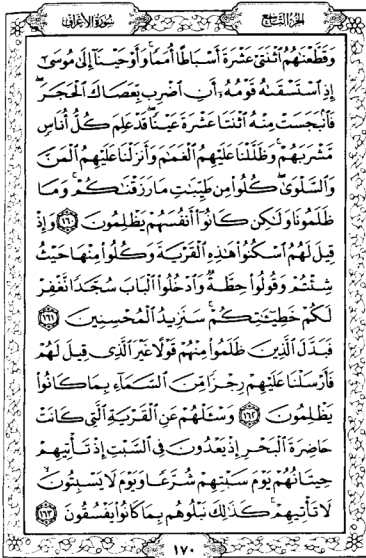 الجزء التاسع سورة الأعراف
وَقَطَّعْنَٰهُمُ ٱثْنَتَىْ عَشْرَةَ أَسْبَاطًا أُمَمًا ۚ وَأَوْحَيْنَآ إِلَىٰ مُوسَىٰٓ
إِذِ ٱسْتَسْقَىٰهُ قَوْمُهُۥٓ أَنِ ٱضْرِب بِّعَصَاكَ ٱلْحَجَرَ ۖ
فَٱنۢبَجَسَتْ مِنْهُ ٱثْنَتَا عَشْرَةَ عَيْنًا ۖ قَدْ عَلِمَ كُلُّ أُنَاسٍ
مَّشْرَبَهُمْ ۚ وَظَلَّلْنَا عَلَيْهِمُ ٱلْغَمَٰمَ وَأَنزَلْنَا عَلَيْهِمُ ٱلْمَنَّ
وَٱلسَّلْوَىٰ ۖ كُلُوا۟ مِن طَيِّبَٰتِ مَا رَزَقْنَٰكُمْ ۚ وَمَا
ظَلَمُونَا وَلَٰكِن كَانُوٓا۟ أَنفُسَهُمْ يَظْلِمُونَ ١٦٠ وَإِذْ
قِيلَ لَهُمُ ٱسْكُنُوا۟ هَٰذِهِ ٱلْقَرْيَةَ وَكُلُوا۟ مِنْهَا حَيْثُ
شِئْتُمْ وَقُولُوا۟ حِطَّةٌ وَٱدْخُلُوا۟ ٱلْبَابَ سُجَّدًا نَّغْفِرْ
لَكُمْ خَطِيٓـَٰٔتِكُمْ ۚ سَنَزِيدُ ٱلْمُحْسِنِينَ ١٦١
فَبَدَّلَ ٱلَّذِينَ ظَلَمُوا۟ مِنْهُمْ قَوْلًا غَيْرَ ٱلَّذِى قِيلَ لَهُمْ
فَأَرْسَلْنَا عَلَيْهِمْ رِجْزًا مِّنَ ٱلسَّمَآءِ بِمَا كَانُوا۟
يَظْلِمُونَ ١٦٢ وَسْـَٔلْهُمْ عَنِ ٱلْقَرْيَةِ ٱلَّتِى كَانَتْ
حَاضِرَةَ ٱلْبَحْرِ إِذْ يَعْدُونَ فِى ٱلسَّبْتِ إِذْ تَأْتِيهِمْ
حِيتَانُهُمْ يَوْمَ سَبْتِهِمْ شُرَّعًا وَيَوْمَ لَا يَسْبِتُونَ ۙ
لَا تَأْتِيهِمْ ۚ كَذَٰلِكَ نَبْلُوهُم بِمَا كَانُوا۟ يَفْسُقُونَ ١٦٣
١٧٠